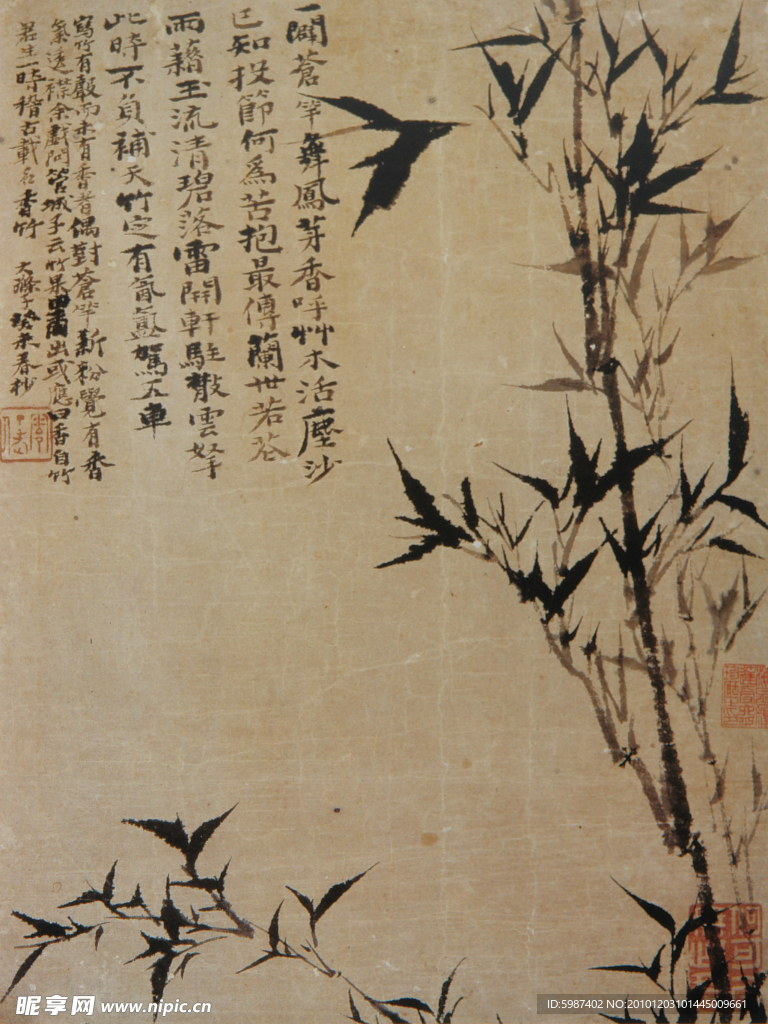 一闢蒼竿舞鳳芽香呼艸木活塵沙
已知投節何爲苦抱最傳蘭世若荅
雨藉玉流清碧落雷開軒駐散雲
此時不負補天竹定有氤氳駕五車
寫竹有聲而未有香者偶對蒼竿新粉覺有香
氣透襟余戲問管城子云竹果出或應曰香自竹
君生一時稽古載名香竹 大滌子癸未春杪
昵享网 www.nipic.cn
ID:5987402 NO:20101203101445009661